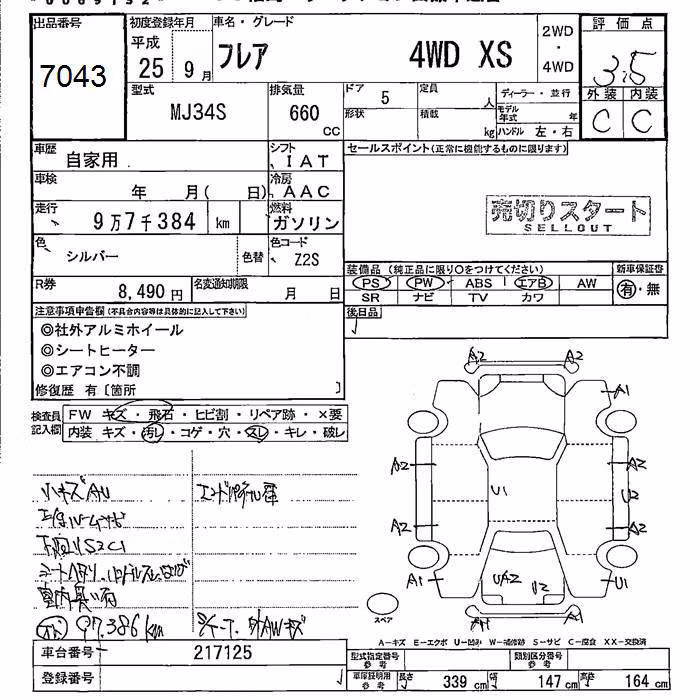 出品番号 初度登録年月 車名・グレード 評価点
7043 平成 25 9月 フレア 4WD XS 2WD・4WD 3.5
外装 内装
C C
型式 MJ34S 排気量 660 CC
ドア 5 定員 人 ディーラー・並行
形状 積載 kg モデル年式 年 ハンドル 左・右
車歴 自家用 シフト IAT セールスポイント(正常に機能するものに限ります)
車検 年 月( 日) 冷房 AAC
走行 9万7千384 km 燃料 ガソリン
売切りスタート
SELLOUT
色 シルバー 色替 色コード Z2S
R券 8,490円 名変通知期限 月 日
装備品 (純正品に限り○をつけてください) 新車保証書
PS PW ABS エアB AW 有・無
SR ナビ TV カワ
注意事項申告欄(不具合内容等は具体的に記入して下さい) 後日品
◎社外アルミホイール
◎シートヒーター
◎エアコン不調
修復歴 有〔箇所 〕
検査員記入欄 FW キズ・飛石・ヒビ割・リペア跡・×要
内装 キズ・汚レ・コゲ・穴・スレ・キレ・破レ
A2 A2
A1
A2 A2
U1 U2
A2 A2
A1 UA2 U2 U1
小キズAU
下廻りS2C1
97.386km
外AWキズ
スペア
A-キズ E-エクボ U-凹み W-補修跡 S-サビ C-腐食 XX-交換済
車台番号 217125
登録番号
型式指定番号 参考 類別区分番号 参考
車庫証明用 参考 長さ 339 cm 幅 147 cm 高さ 164 cm